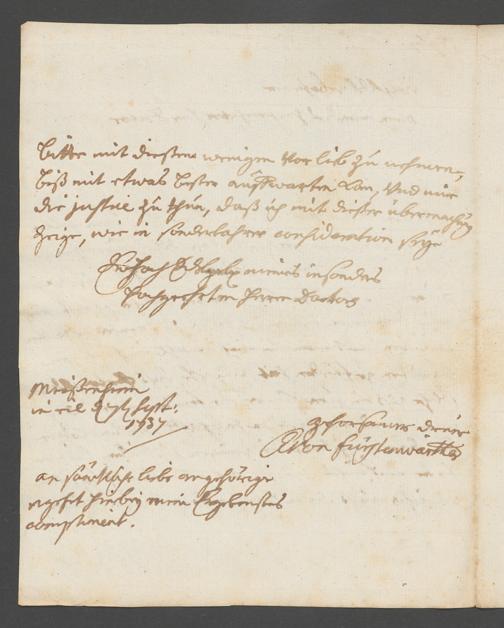 bitte mit dießem wenigen vor lieb zu nehmen,
biß mit etwas beßer aufwarten kan, und mir
die justice zu thun, daß ich mit dießer übermachung
zeige, wie in sonderbahrer consideration seye
meines insonders
hochgeehrten Herrn Doctors
Meißenheim
in eil d Sept:
1737
gehorsamer diener
von fürstenwärther
an sämtliche liebe angehörige
hierbey mein Ergebenstes
compliment.